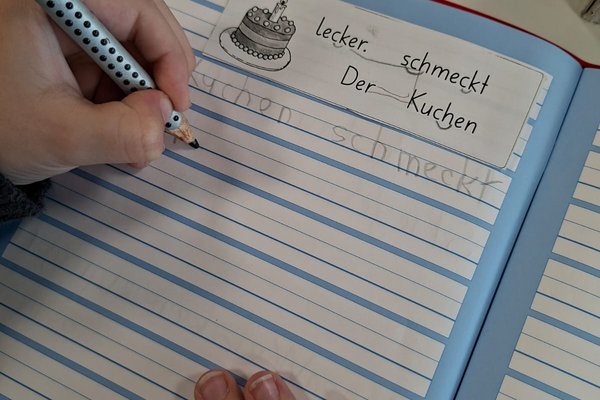 lecker. schmeckt
Der Kuchen
uchen schmeckt